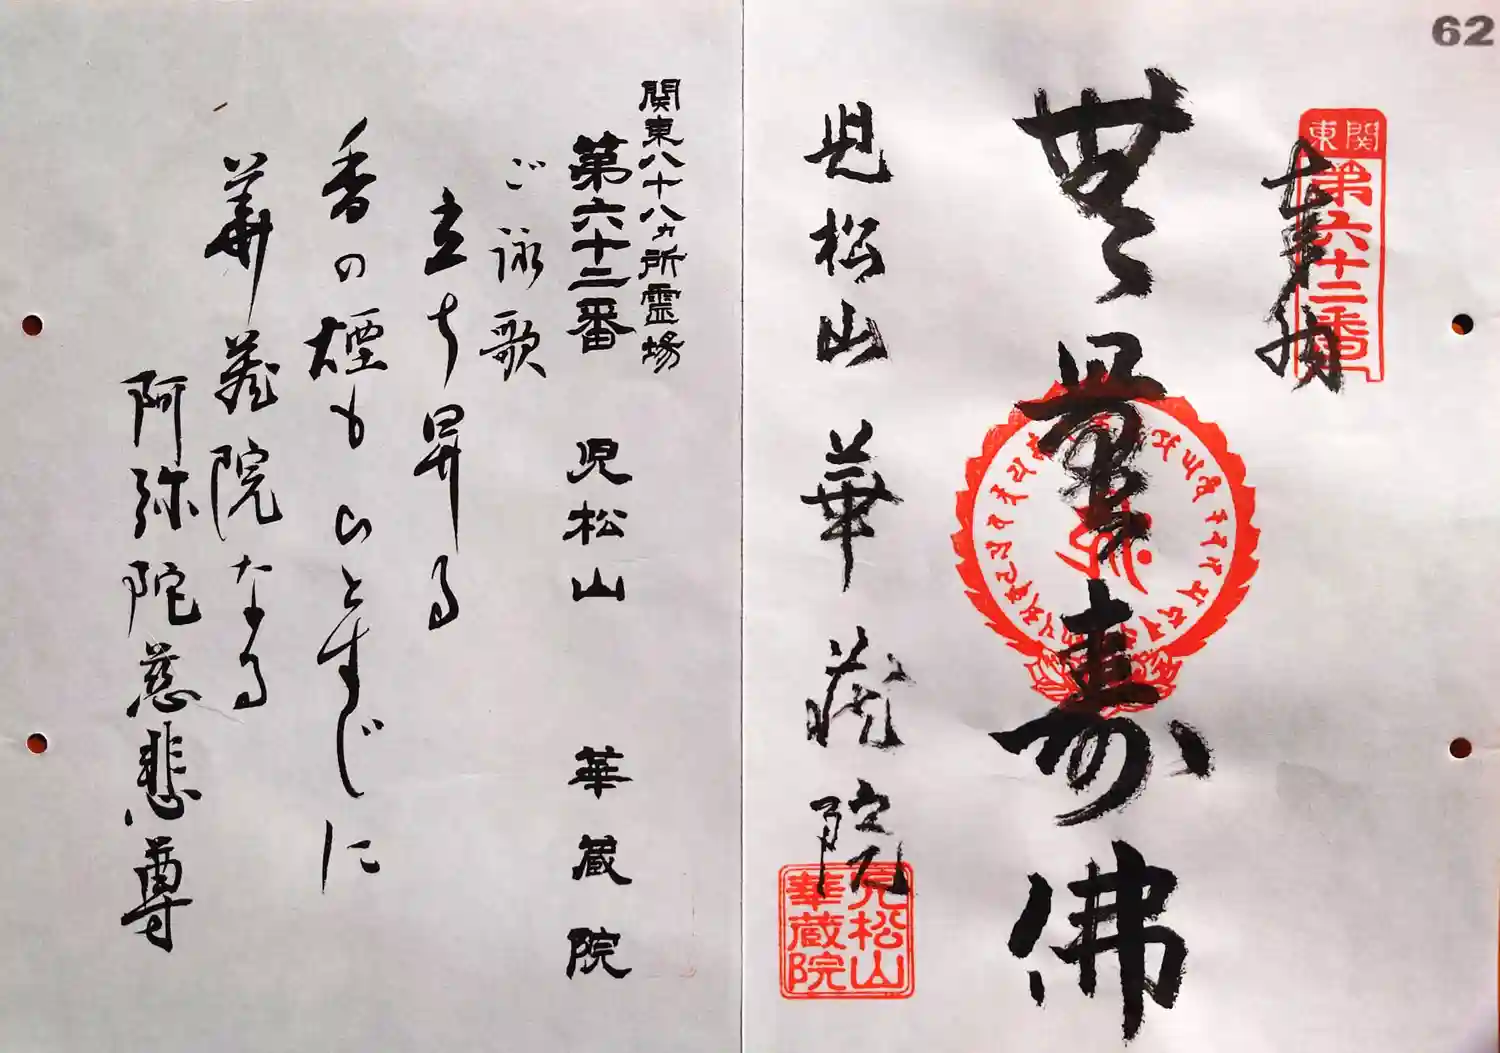 62
関東
第六十二番
奉納
無量寿佛
児松山 華蔵院
児松山
華蔵院
関東八十八ヵ所霊場
第六十二番 児松山 華蔵院
ご詠歌
立ち昇る
香の煙も ひとすじに
華蔵院なる
阿弥陀慈悲尊